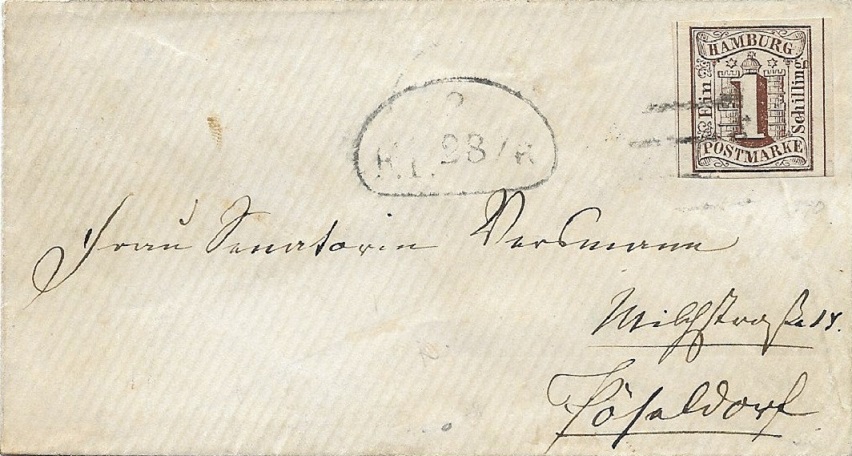 HAMBURG
Ein
1
Schilling
POSTMARKE
28/
Frau Senatorin Versmann
Milchstraße
Pöseldorf